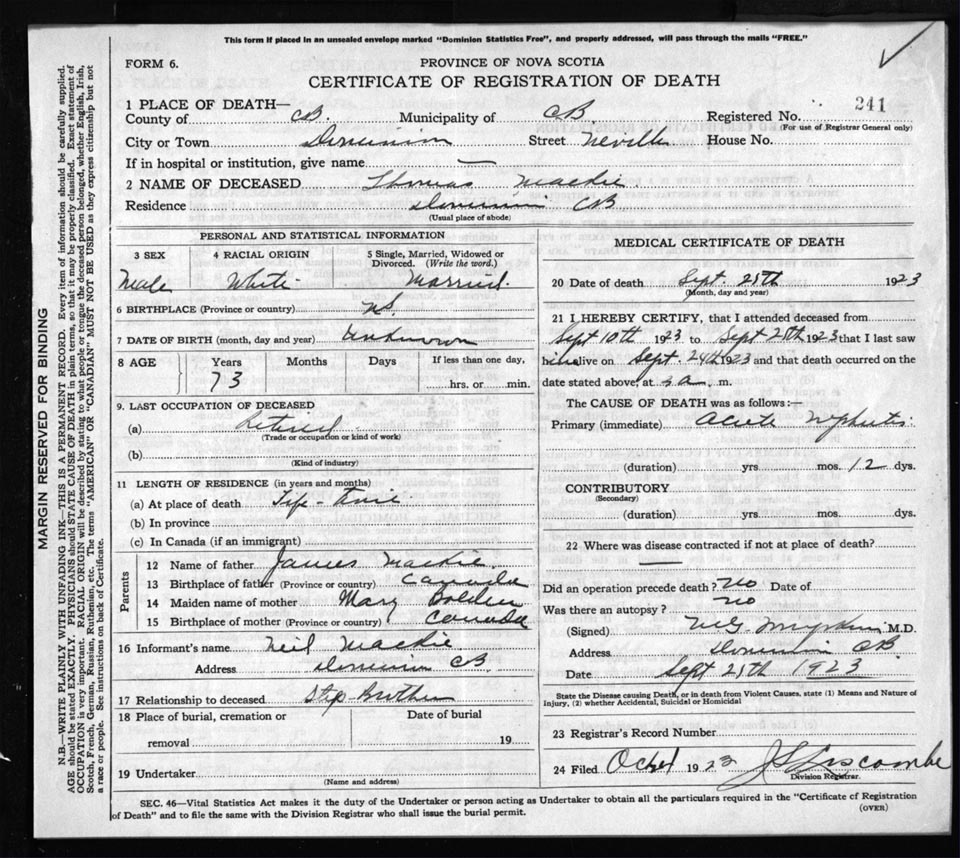 This form if placed in an unsealed envelope marked "Dominion Statistics Free", and properly addressed, will pass through the mails "FREE."
FORM 6.
PROVINCE OF NOVA SCOTIA
CERTIFICATE OF REGISTRATION OF DEATH
1 PLACE OF DEATH—
241
County of CB. Municipality of CB. Registered No.
(For use of Registrar General only)
City or Town Dominion Street Neville House No.
If in hospital or institution, give name —
2 NAME OF DECEASED Thomas Mackie
Residence Dominion CB
(Usual place of abode)
PERSONAL AND STATISTICAL INFORMATION
3 SEX 4 RACIAL ORIGIN 5 Single, Married, Widowed or Divorced. (Write the word.)
Male White Married.
6 BIRTHPLACE (Province or country) N.S.
7 DATE OF BIRTH (month, day and year) Unknown
8 AGE Years Months Days If less than one day,
73 hrs. or min.
9. LAST OCCUPATION OF DECEASED
(a) Retired
(Trade or occupation or kind of work)
(b)
(Kind of industry)
11 LENGTH OF RESIDENCE (in years and months)
(a) At place of death Life-time
(b) In province
(c) In Canada (if an immigrant)
Parents
12 Name of father James Mackie.
13 Birthplace of father (Province or country) Canada
14 Maiden name of mother Mary
15 Birthplace of mother (Province or country) Canada
16 Informant's name Neil Mackie
Address Dominion CB
17 Relationship to deceased Step-Brother
18 Place of burial, cremation or Date of burial
removal 19
19 Undertaker
(Name and address)
MEDICAL CERTIFICATE OF DEATH
20 Date of death Sept. 25th 1923
(Month, day and year)
21 I HEREBY CERTIFY, that I attended deceased from
Sept 10th 1923 to Sept 25th 1923 that I last saw
him alive on Sept. 24th 1923 and that death occurred on
date stated above, at a. m.
The CAUSE OF DEATH was as follows:—
Primary (immediate) Acute Nephritis.
(duration) yrs. mos. 12 dys.
CONTRIBUTORY
(Secondary)
(duration) yrs. mos. dys.
22 Where was disease contracted if not at place of death?
—
Did an operation precede death? No Date of
Was there an autopsy? No
(Signed) M.D.
Address Dominion CB.
Date Sept 25th 1923
State the Disease causing Death, or in death from Violent Causes, state (1) Means and Nature of Injury, (2) whether Accidental, Suicidal or Homicidal
23 Registrar's Record Number
24 Filed 1923
Division Registrar.
SEC. 46—Vital Statistics Act makes it the duty of the Undertaker or person acting as Undertaker to obtain all the particulars required in the "Certificate of Registration
of Death" and to file the same with the Division Registrar who shall issue the burial permit.
(OVER)
MARGIN RESERVED FOR BINDING
N.B.—WRITE PLAINLY WITH UNFADING INK—THIS IS A PERMANENT RECORD. Every item of information should be carefully supplied.
AGE should be stated EXACTLY. PHYSICIANS should STATE CAUSE OF DEATH in plain terms, so that it may be properly classified. Exact statement of
OCCUPATION is very important. RACIAL ORIGIN will be described by stating to what people or tongue the deceased person belonged, whether English, Irish,
Scotch, French, German, Russian, Ruthenian, etc. The terms "AMERICAN" OR "CANADIAN" MUST NOT BE USED as they express citizenship but not
a race or people. See instructions on back of Certificate.